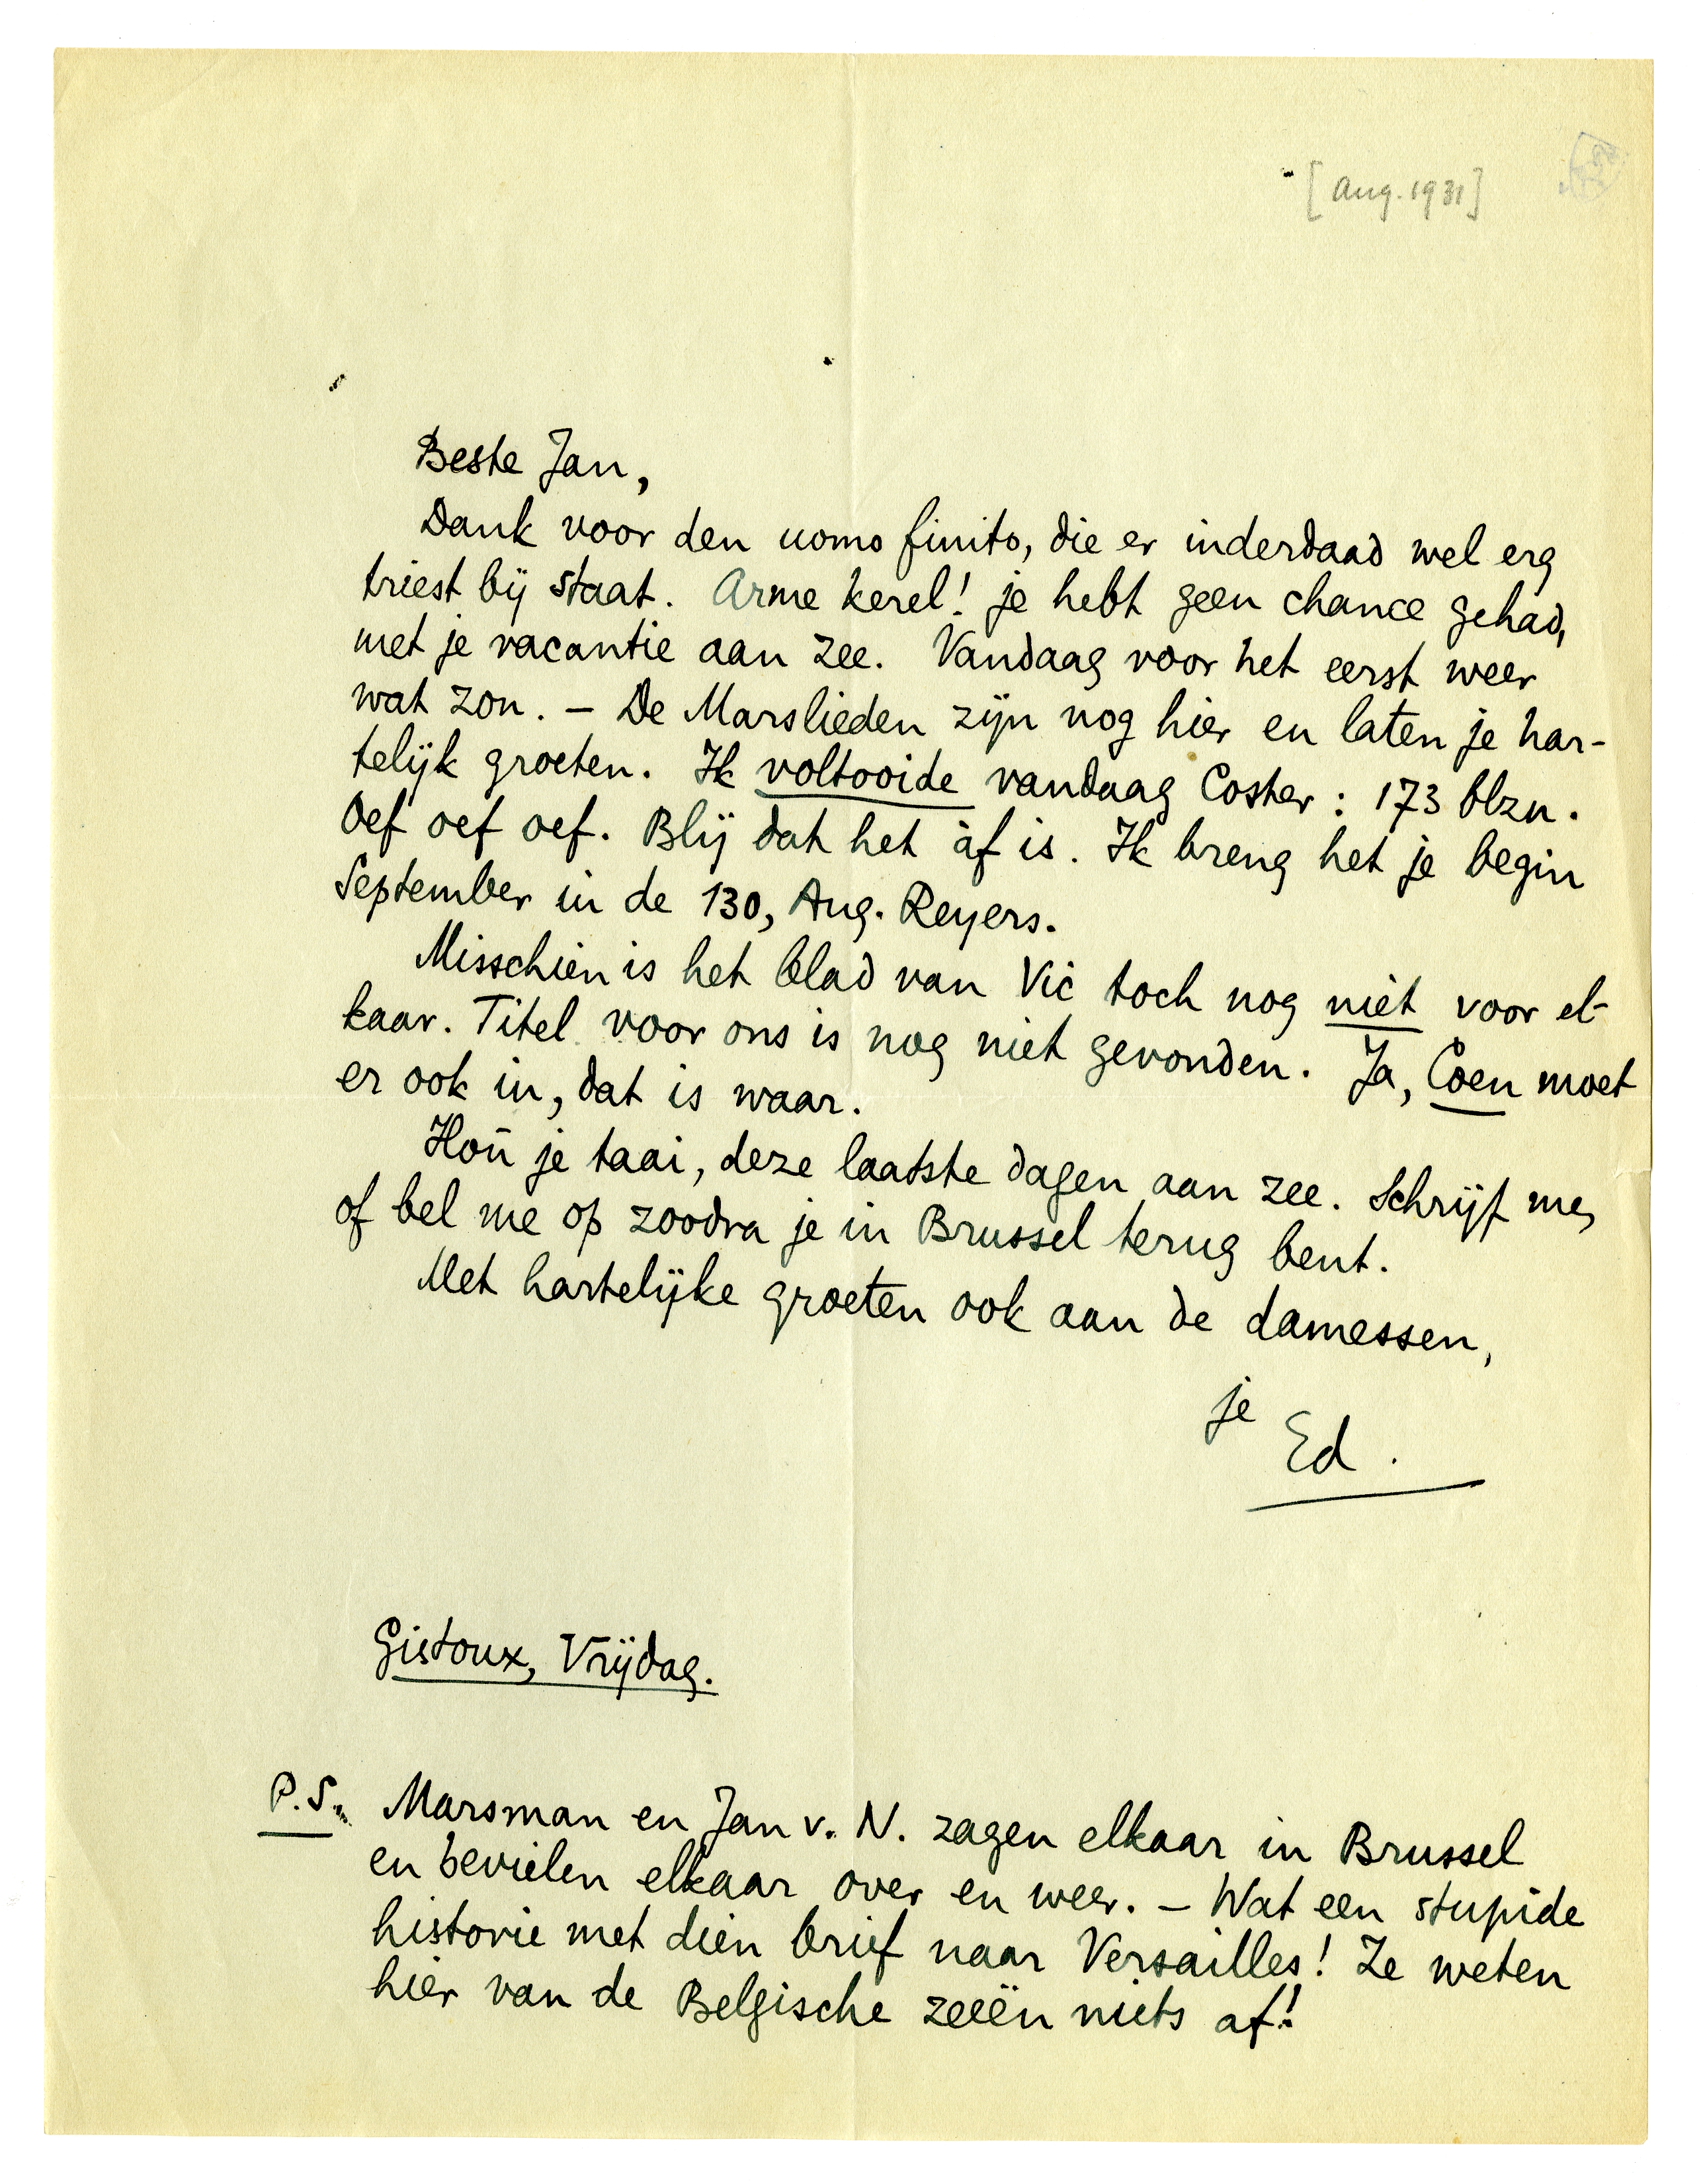 [Aug. 1931]
Beste Jan,
Dank voor den uomo finito, die er inderdaad wel erg
triest bij staat. Arme kerel! je hebt geen chance gehad,
met je vacantie aan zee. Vandaag voor het eerst weer
wat zon. – De Marslieden zijn nog hier en laten je har-
telijk groeten. Ik voltooide vandaag Coster: 173 blzn.
Oef oef oef. Blij dat het àf is. Ik breng het je begin
September in de 130, Aug. Reyers.
Misschien is het blad van Vic toch nog niet voor el-
kaar. Titel voor ons is nog niet gevonden. Ja, Coen moet
er ook in, dat is waar.
Hou je taai, deze laatste dagen aan zee. Schrijf me,
of bel me op zoodra je in Brussel terug bent.
Met hartelijke groeten ook aan de damessen,
je
Ed.
Gistoux, Vrijdag.
P.S. Marsman en Jan v. N. zagen elkaar in Brussel
en bevielen elkaar over en weer. – Wat een stupide
historie met dien brief naar Versailles! Ze weten
hier van de Belgische zeeën niets af!